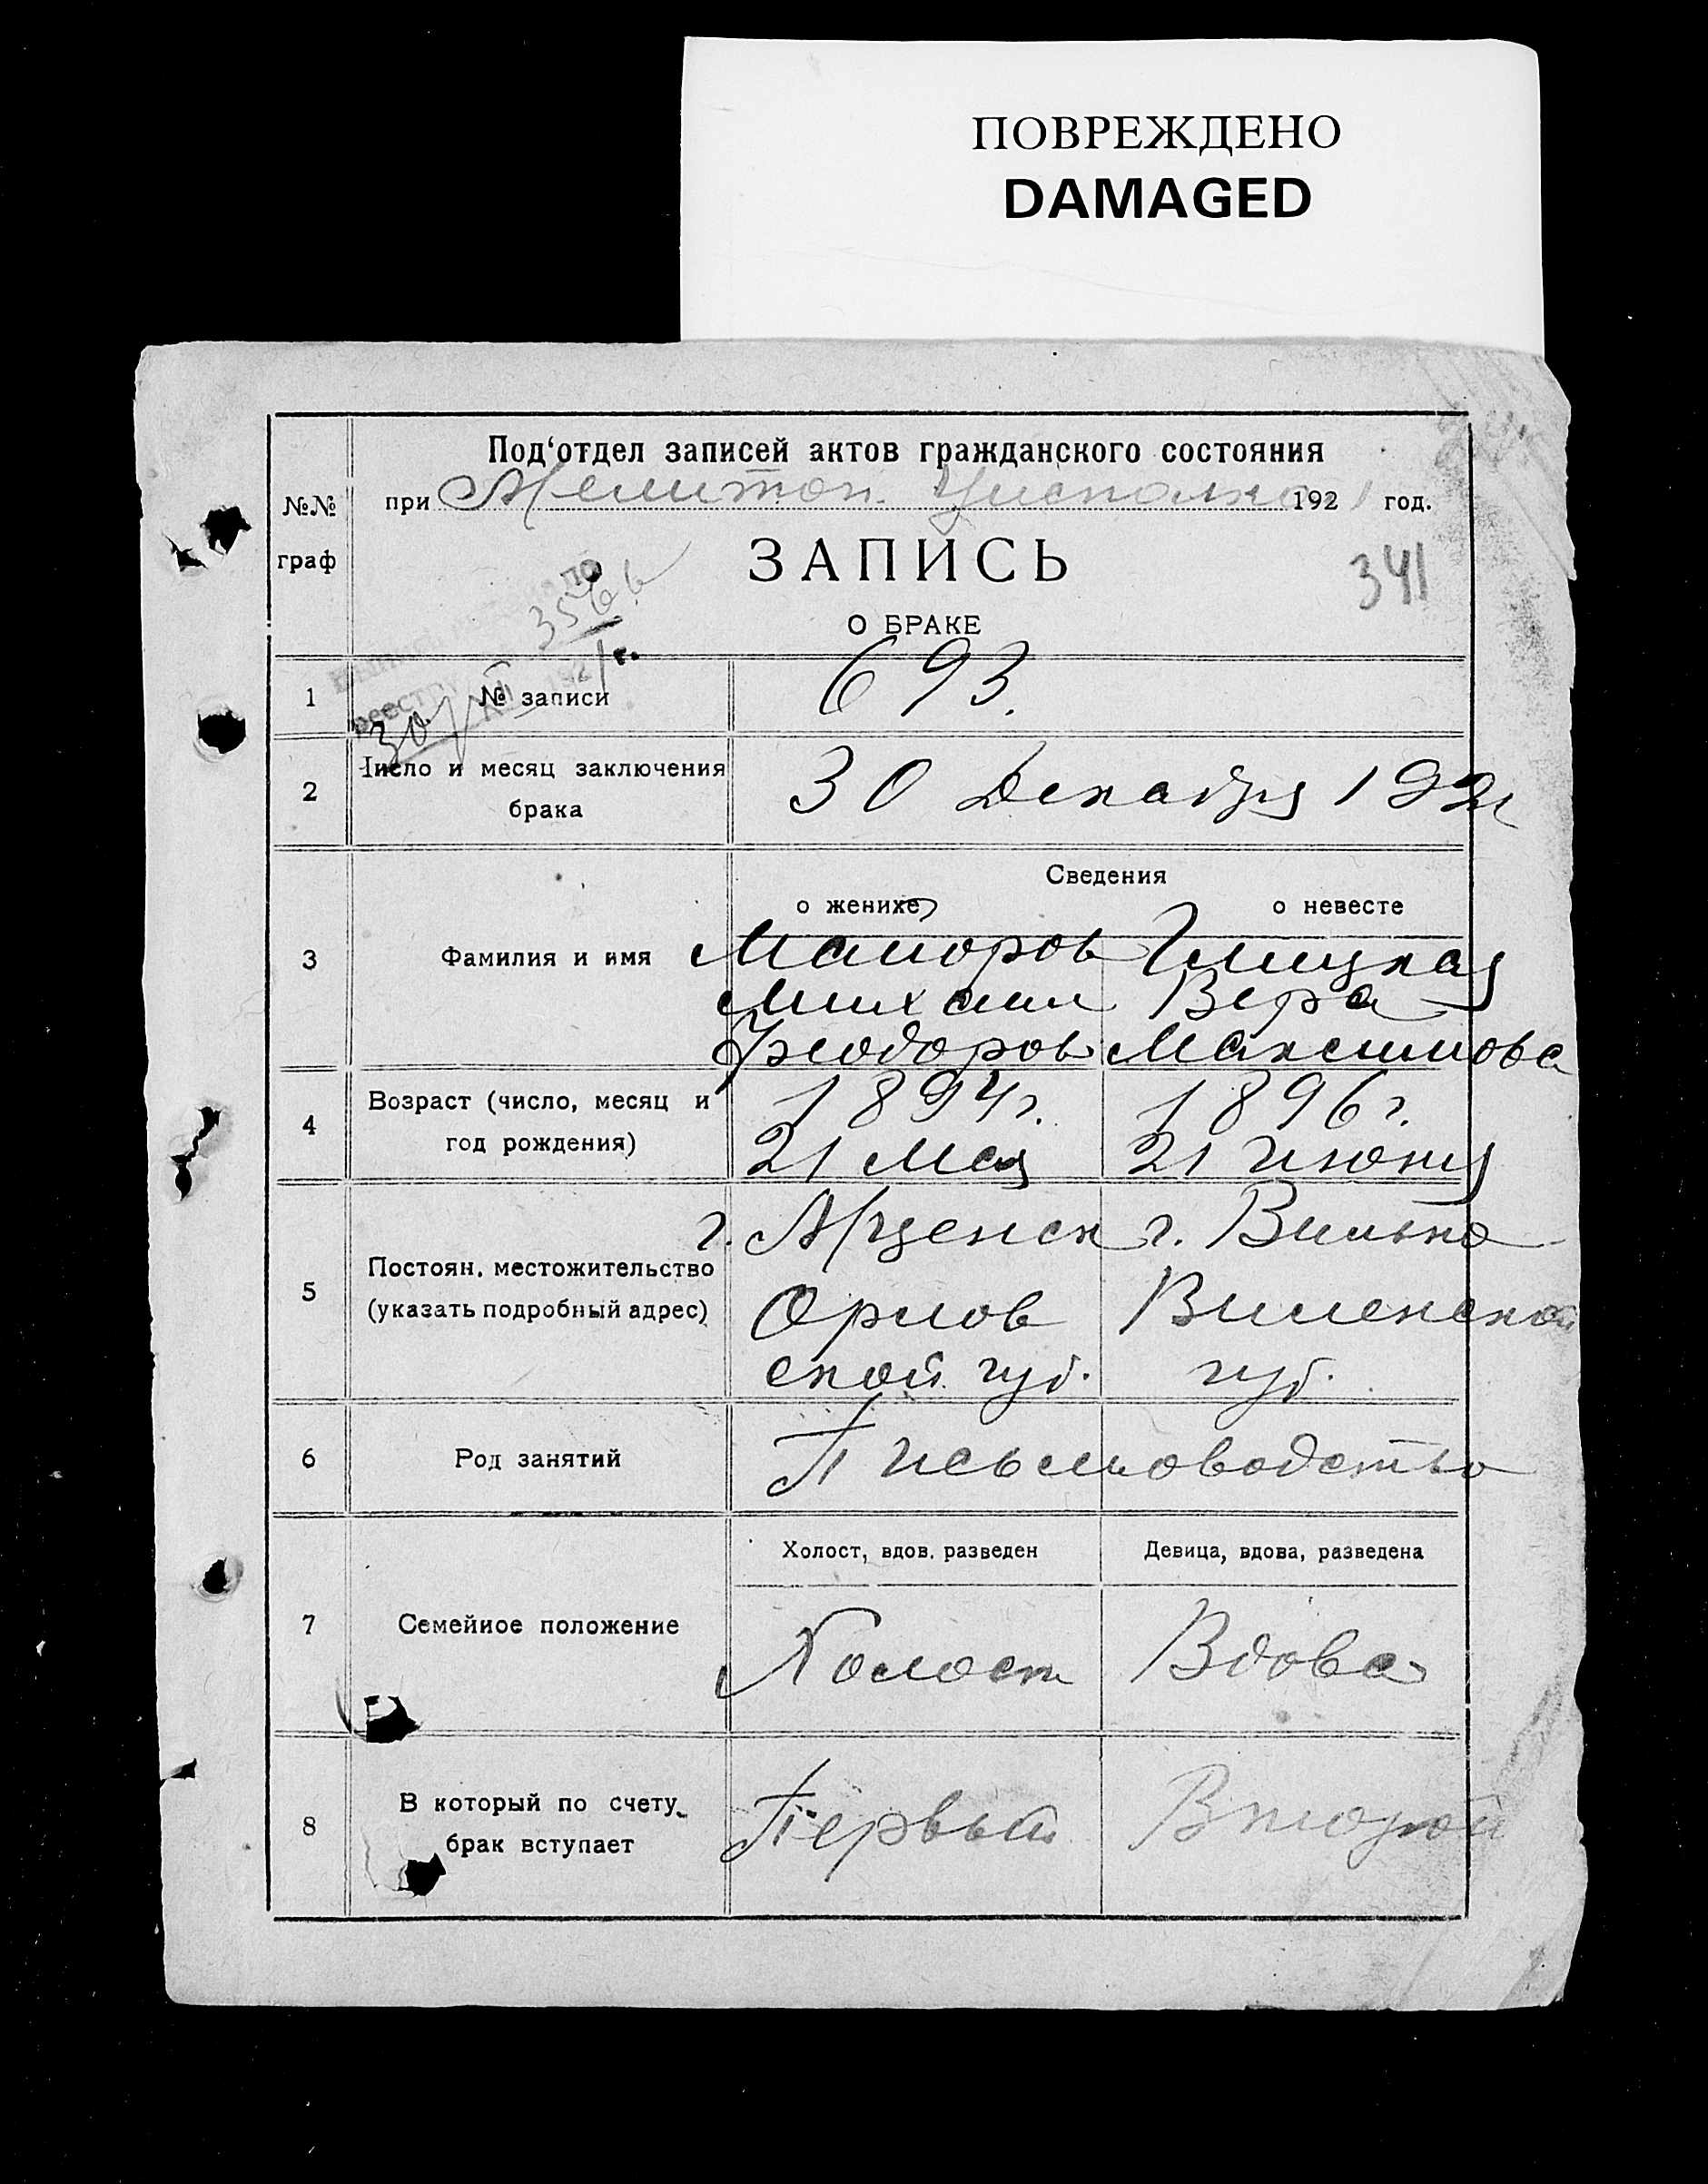 ПОВРЕЖДЕНО
DAMAGED
Под‘отдел записей актов гражданского состояния
№№
граф
при Мелитоп. Уисполко 1921 год.
ЗАПИСЬ
341
О БРАКЕ
по
реестру
356
1921 г.
30/XII
1 № записи 693.
2 Число и месяц заключения
брака
30 Декабря 1921
Сведения
о женихе о невесте
3 Фамилия и имя
Маиоров
Михаил Вера
Феодоров Максимова
4 Возраст (число, месяц и
год рождения)
1894 г. 1896 г.
21 Мая 21 июня
5 Постоян. местожительство
(указать подробный адрес)
г. Мценск г. Вильно
Орлов Виленской
ской губ. губ.
6 Род занятий Письмоводство
Холост, вдов. разведен Девица, вдова, разведена
7 Семейное положение Холост Вдова
8 В который по счету
брак вступает
Первый Второй